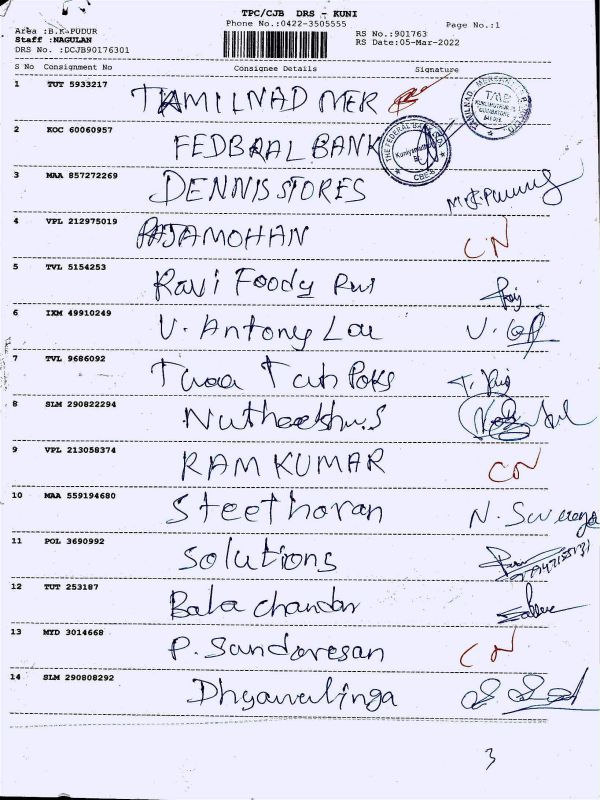 TPC/CJB DRS - KUNI
Phone No.:0422-3505555
Page No.:1
Area :B.K.PUDUR
Staff :NAGULAN
DRS No. :DCJB90176301
RS No.:901763
RS Date:05-Mar-2022
S No Consignment No Consignee Details Signature
1 TUT 5933217 TAMILNAD MER
TMB
2 KOC 60060957 FEDERAL BANK
THE FEDERAL BANK
3 MAA 857272269 DENNIS STORES
4 VPL 212975019 RAJAMOHAN CN
5 TVL 5154253 Ravi Foody Pvt
6 IXM 49910249 V. Antony
7 TVL 9686092
8 SLM 290822294
9 VPL 213058374 RAM KUMAR CN
10 MAA 559194680 Steethoran N.
11 POL 3690992 Solutions
12 TUT 253187 Bala chandar
13 MYD 3014668 P. Sundaresan CN
14 SLM 290808292 Dhyanalinga
3